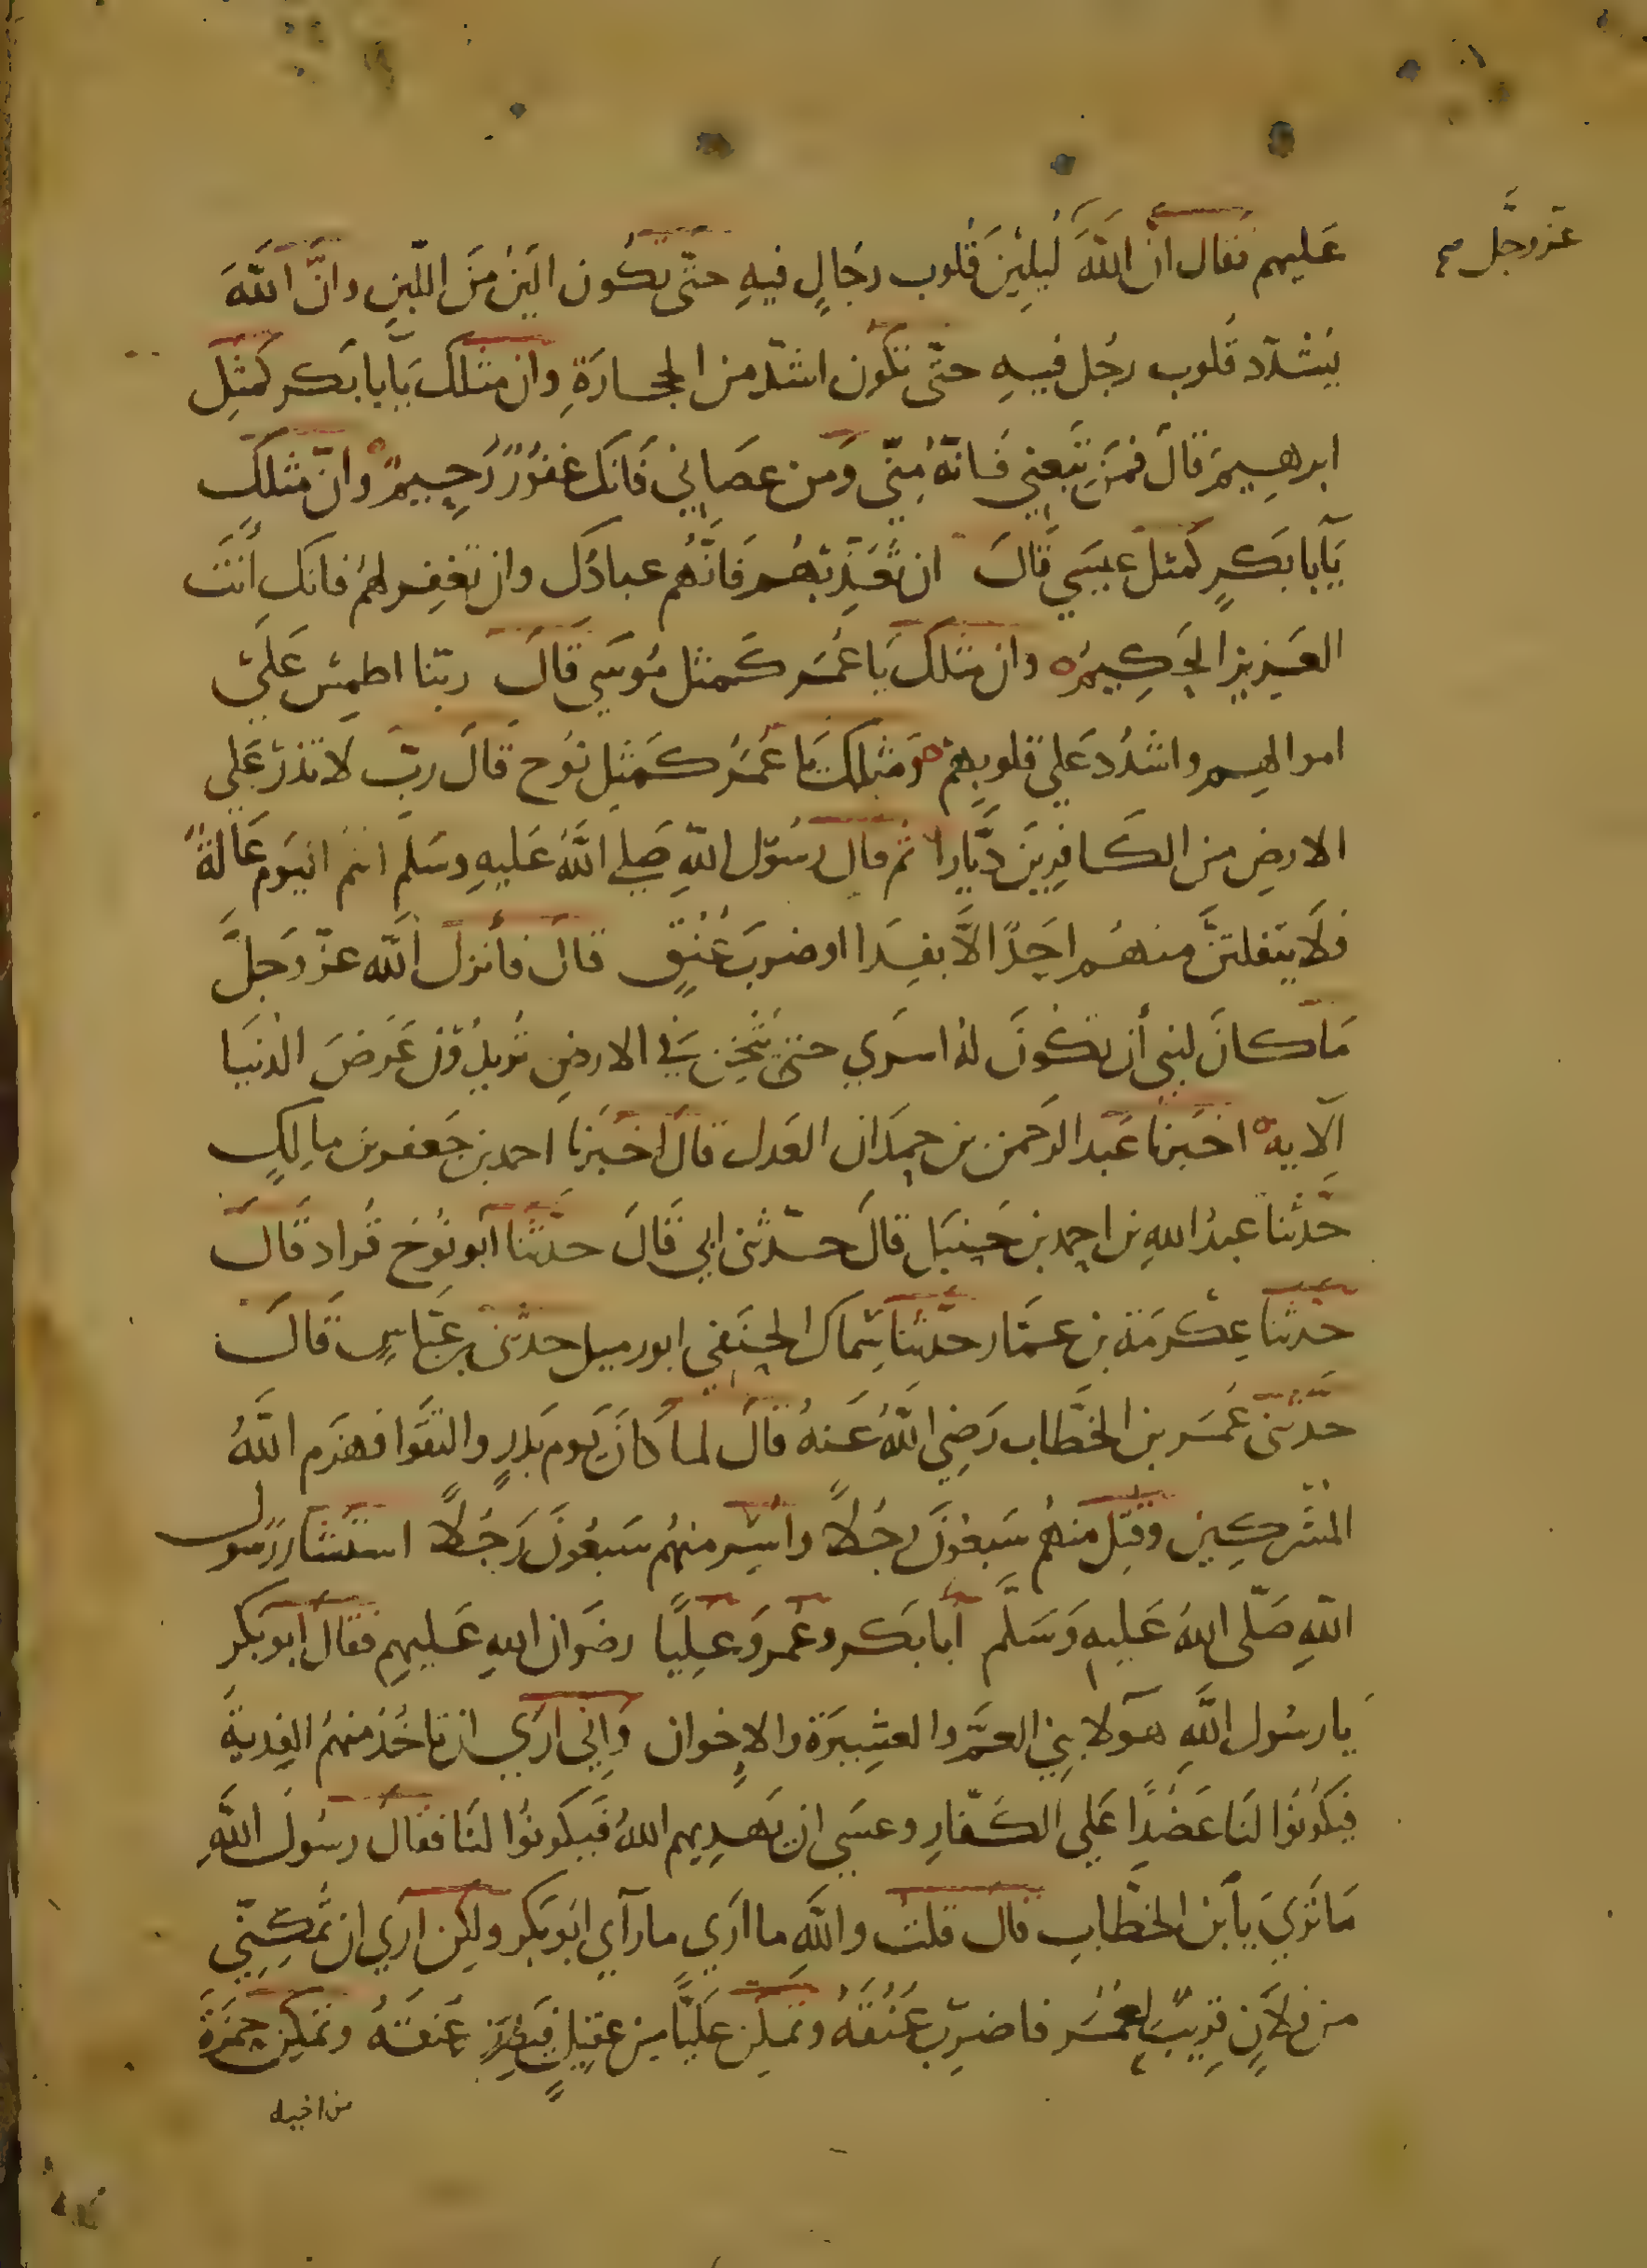 عز وجل صح
عَليهم فقال انّ اللهَ لَيُلِيِنَ قُلوب رجَالٍ فيهِ حتّى تكُون اليَنَ مَن اللّبنِ وانَّ اللهَ
يَشدّد قلوب رجُل فيهِ حتّى تكون اشدّ من الحجارَةِ وان مثلك يَّابا بَكر كمثِل
ابرهِيمَ قال فمَن تَبعني فَانّهُ مِنّي وَمن عصَاني فَانك غفوُرٌ رَحِيمٌ وانّ مثلك
يَآبا بَكرٍ كمثل عيسَي قَالَ ان تُعَذِّبْهُم فَانَّهُم عبادُك وان تغفِر لهُم فانك أَنتَ
العَزيز الحَكِيمُ وان مثلكَ يَا عُمَر كَمثل مُوسَي قَالَ ربّنا اطمِسْ عَلَيْ
اموالهِم واشدُد عَلي قلوبِهمْ وَمَثلك يَا عُمَرُ كَمَثِل نوُح قَالَ ربّ لا تَذرْ عَلي
الارضِ من الكَافِرِيَن دَيَّاراً ثم قال رسُوُل اللهِ صَلي اللهُ عَليهِ وسَلم انتم اليَوم عَالةً
فلَا يَنفلتنَّ منهُم احَدًا الاَّ بفِدَا او ضربَ عُنُقٍ قالَ فأنزلَ اللَّه عزّ وَجلَّ
مَا كانَ لنبي أن تكُونَ لهُ اسرَي حتىّ يُثخِن فَي الارضِ تُريدُوُن عَرَضَ الدنيَا
الآيه اخبَرنا عَبد الرحمن بن حمدَان العَدل قالَ اخبَرنا احمد بن جَعفر بن مالِكٍ
حَدَّثنا عبدُ اللهِ بن احمد بن حَنبَل قالَ حَدّثني ابي قَالَ حدَّثَنا ابو نُوُح قُراد قَالَ
حَدثنا عِكْرمَة بن عمَّار حدَّثنا سِماك الحنَفي ابو رميل حدثنى بن عَبّاسٍ قَالَ
حدَّثنى عُمَر بن الخطَّاب رَضِي اللهُ عَنهُ قالَ لما كانَ يَوم بَدرٍ والتقَوا فهَزَم اللَّهُ
المشركِين وقتِل منهمُ سَبعُونَ رجُلاً واُسِر منهُم سَبعُونَ رَجُلاً استَشَار رَسول
اللهِ صَلّى اللهُ عَليهِ وَسَلَّم أبا بَكر وعُمر وَعلِيًّا رضوَان اللهِ عَليهِم فقالَ ابو بَكر
يَا رسُول اللَّهِ هَولا بنِي العمَّ والعشِيرَة والاِخوان وَاِني ارَي ان تاخُذ منهمُ الفِديةَ
فيَكوُنوُا لنَا عَضُدًا عَلي الكفّارِ وعسَي ان يَهدِيهم اللهُ فيَكونُوا لنَا فقالَ رسُولَ اللَّهِ
مَا تَرَيَ يا أبن الخطَّابِ قالَ قلتُ واللَّهِ ما ارَي ما رآي ابُو بَكر ولكن ارَي ان تُمكِنّي
من فلاَنٍ قريبٌ لعُمَر فاضرِبُ عُنُقهُ وتمكن عَليًّا من عقيلٍ فيَضرِبَ عُنقَهُ وتمَكِن حَمزَةَ
من اخيه